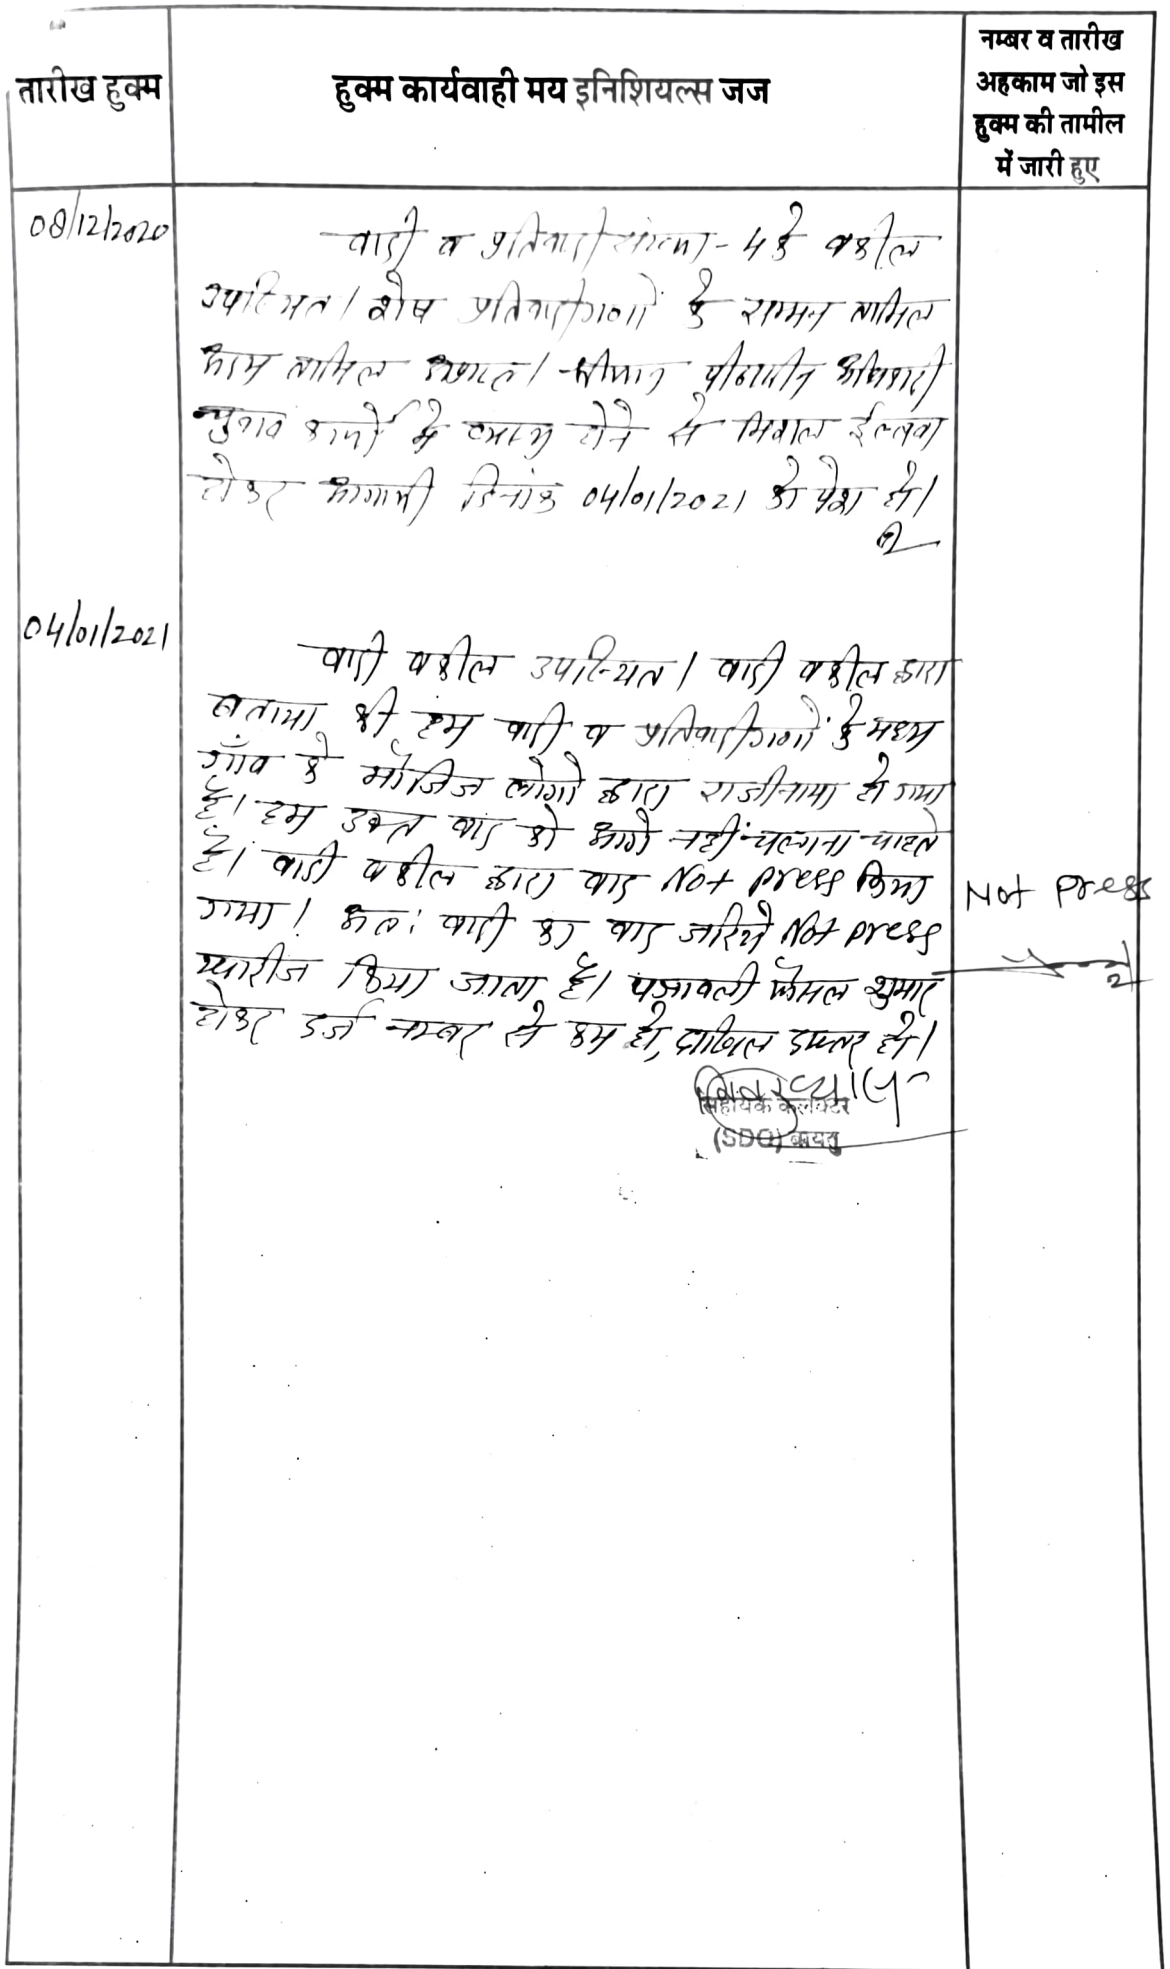 तारीख हुक्म
हुक्म कार्यवाही मय इनिशियल्स जज
नम्बर व तारीख
अहकाम जो इस
हुक्म की तामील
में जारी हुए
08/12/2020
वादी व प्रतिवादी संख्या - 4 के वकील
उपस्थित। शेष प्रतिवादीगणों के सम्मन तामिल
अदम तामिल अप्राप्त। श्रीमान पीठासीन अधिकारी
चुनाव कार्यो मे व्यस्त होने से मिसल ईल्तवा
होकर आगामी दिनांक 04/01/2021 को पेश हो।
04/01/2021
वादी वकील उपस्थित। वादी वकील द्वारा
बताया की हम वादी व प्रतिवादीगणों के मध्य
गाँव के मौजिज लोगो द्वारा राजीनामा हो गया
है। हम उक्त वाद को आगे नहीं चलाना चाहते
है। वादी वकील द्वारा वाद Not press किया
गया। अतः वादी का वाद जरिये Not press
खारीज किया जाता है। पत्रावली फैसल शुमार
होकर दर्ज नम्बर से कम हो, दाखिल दफ्तर हो।
Not press
सहायक कलक्टर
(SDO) बायतु